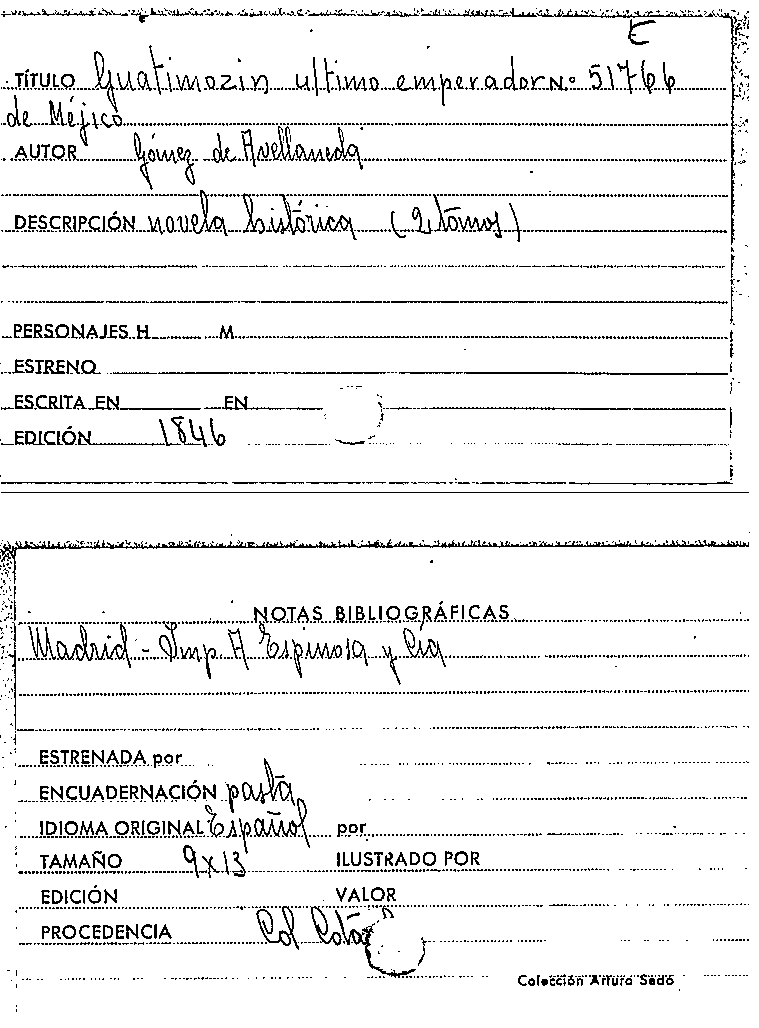 E
TÍTULO Guatimozin ultimo emperador N.º 51766
de Méjico
AUTOR Gómez de Avellaneda
DESCRIPCIÓN novela histórica (2 tomos)
PERSONAJES H M
ESTRENO
ESCRITA EN EN
EDICIÓN 1846
NOTAS BIBLIOGRÁFICAS
Madrid - Imp. A Espinosa y Cía
ESTRENADA por
ENCUADERNACIÓN pasta
IDIOMA ORIGINAL Español por
TAMAÑO 9x13 ILUSTRADO POR
EDICIÓN VALOR
PROCEDENCIA Col
Colección Arturo Sedó